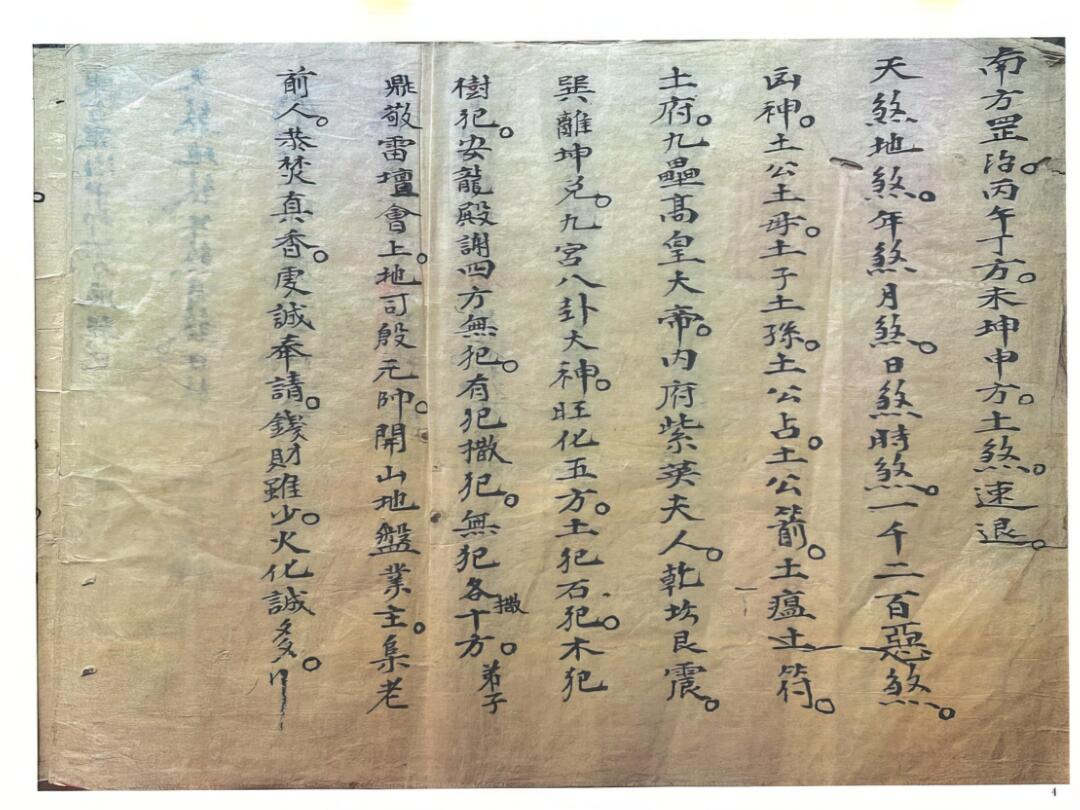 南方罡治。丙午丁方。未坤申方。土煞。速退。
天煞地煞。年煞月煞。日煞時煞。一千二百惡煞。
凶神。土公土母。土子土孫。土公占。土公箭。土瘟土符。
土府。九壘高皇大帝。內府紫英夫人。乾坎艮震。
巽離坤兌。九宮八卦大神。旺化五方。土犯石犯。木犯
樹犯。安龍殿謝四方無犯。有犯撒犯。無犯各撒十方。弟子
鼎敬雷壇會上。地司殷元帥。開山地盤業主。集老
前人。恭焚真香。虔誠奉請。錢財雖少。火化誠多。
4